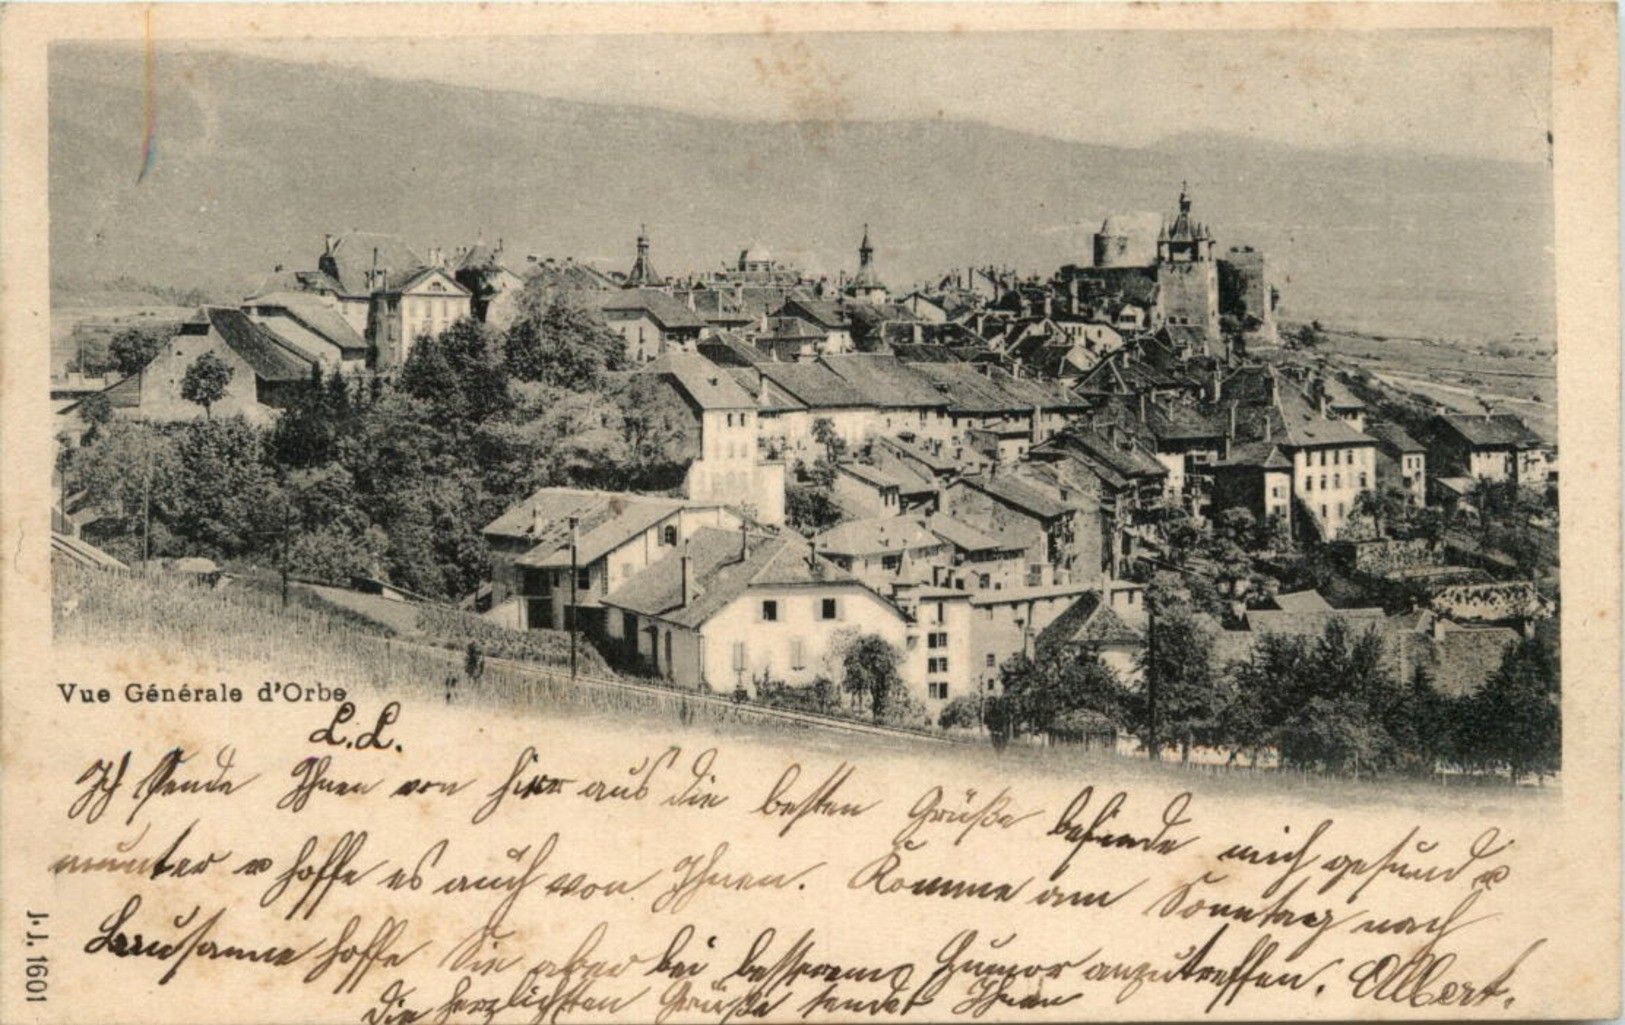 Vue Générale d'Orbe
L.L.
Ich sende Ihnen von hier aus die besten Grüße befinde mich gesund u
munter u hoffe es auch von Ihnen. Komme am Sonntag nach
Lausanne hoffe Sie aber bei besserem Humor anzutreffen. Albert.
die herzlichsten Grüße sendet Ihnen
J.J. 1601